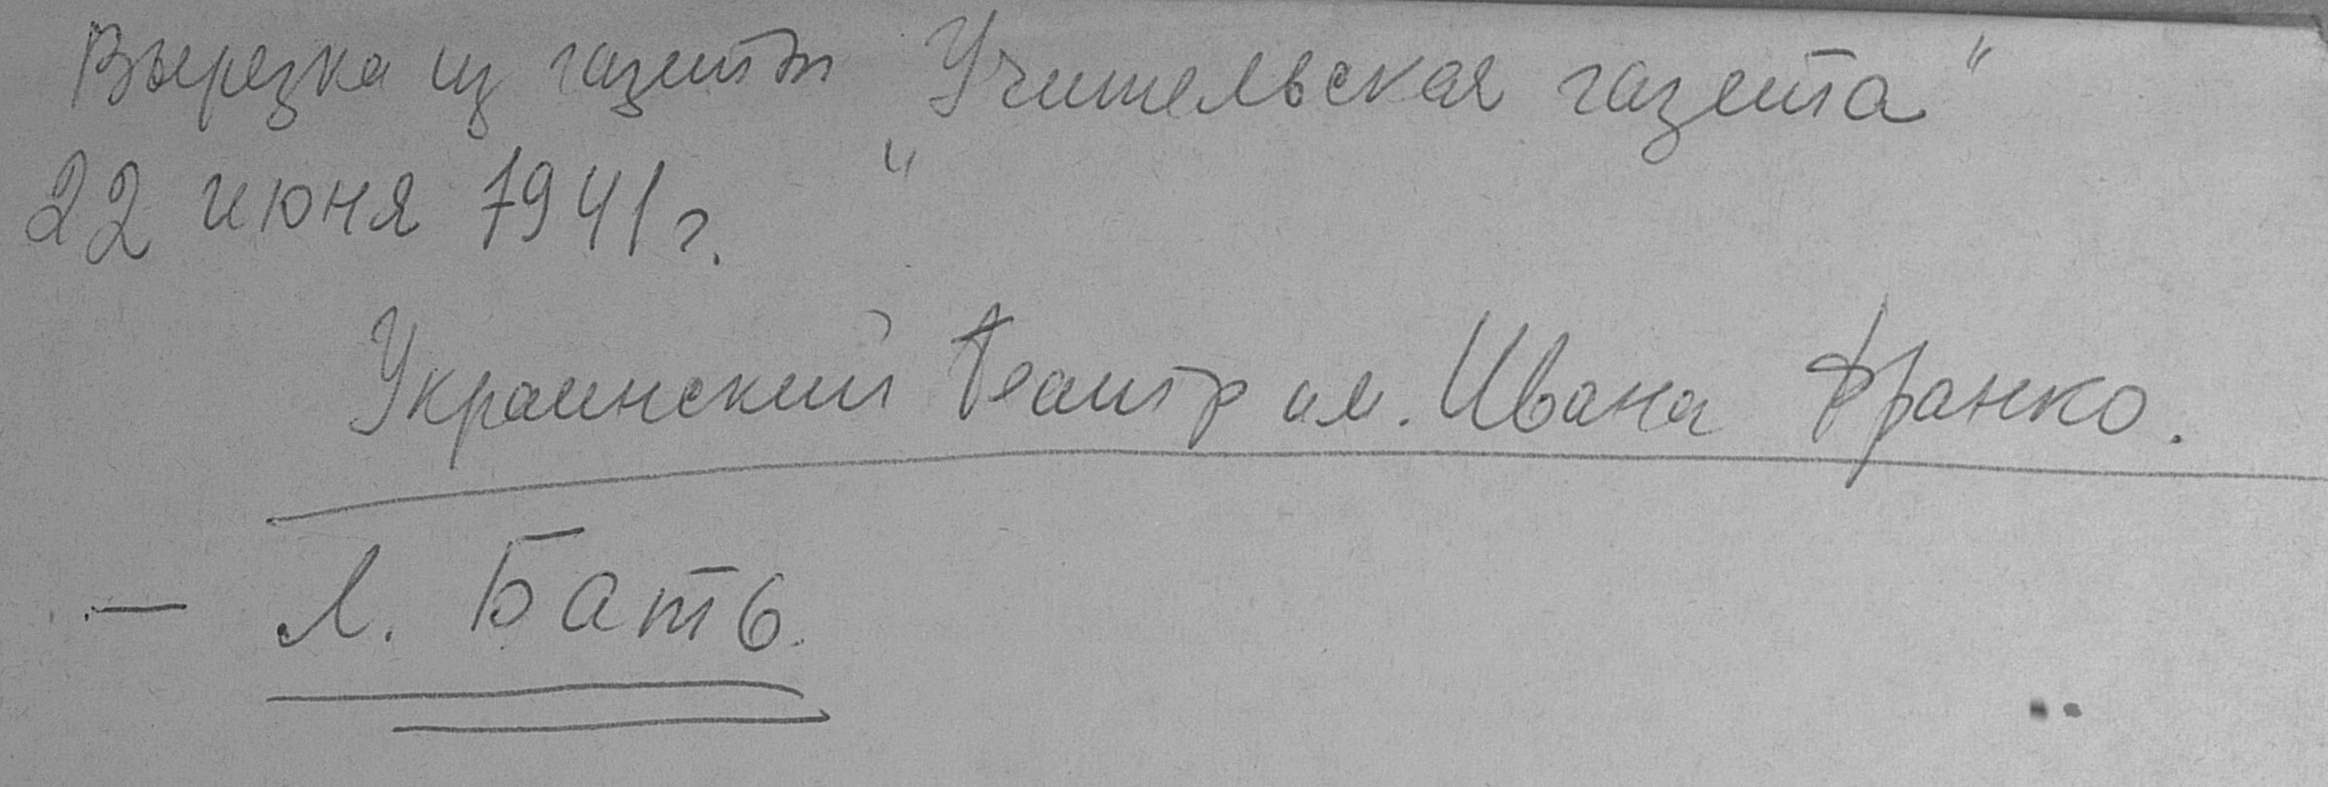 Вырезка из газеты "Учительская газета"
22 июня 1941 г.
Украинский театр им. Ивана Франко.
— Л. Бать.